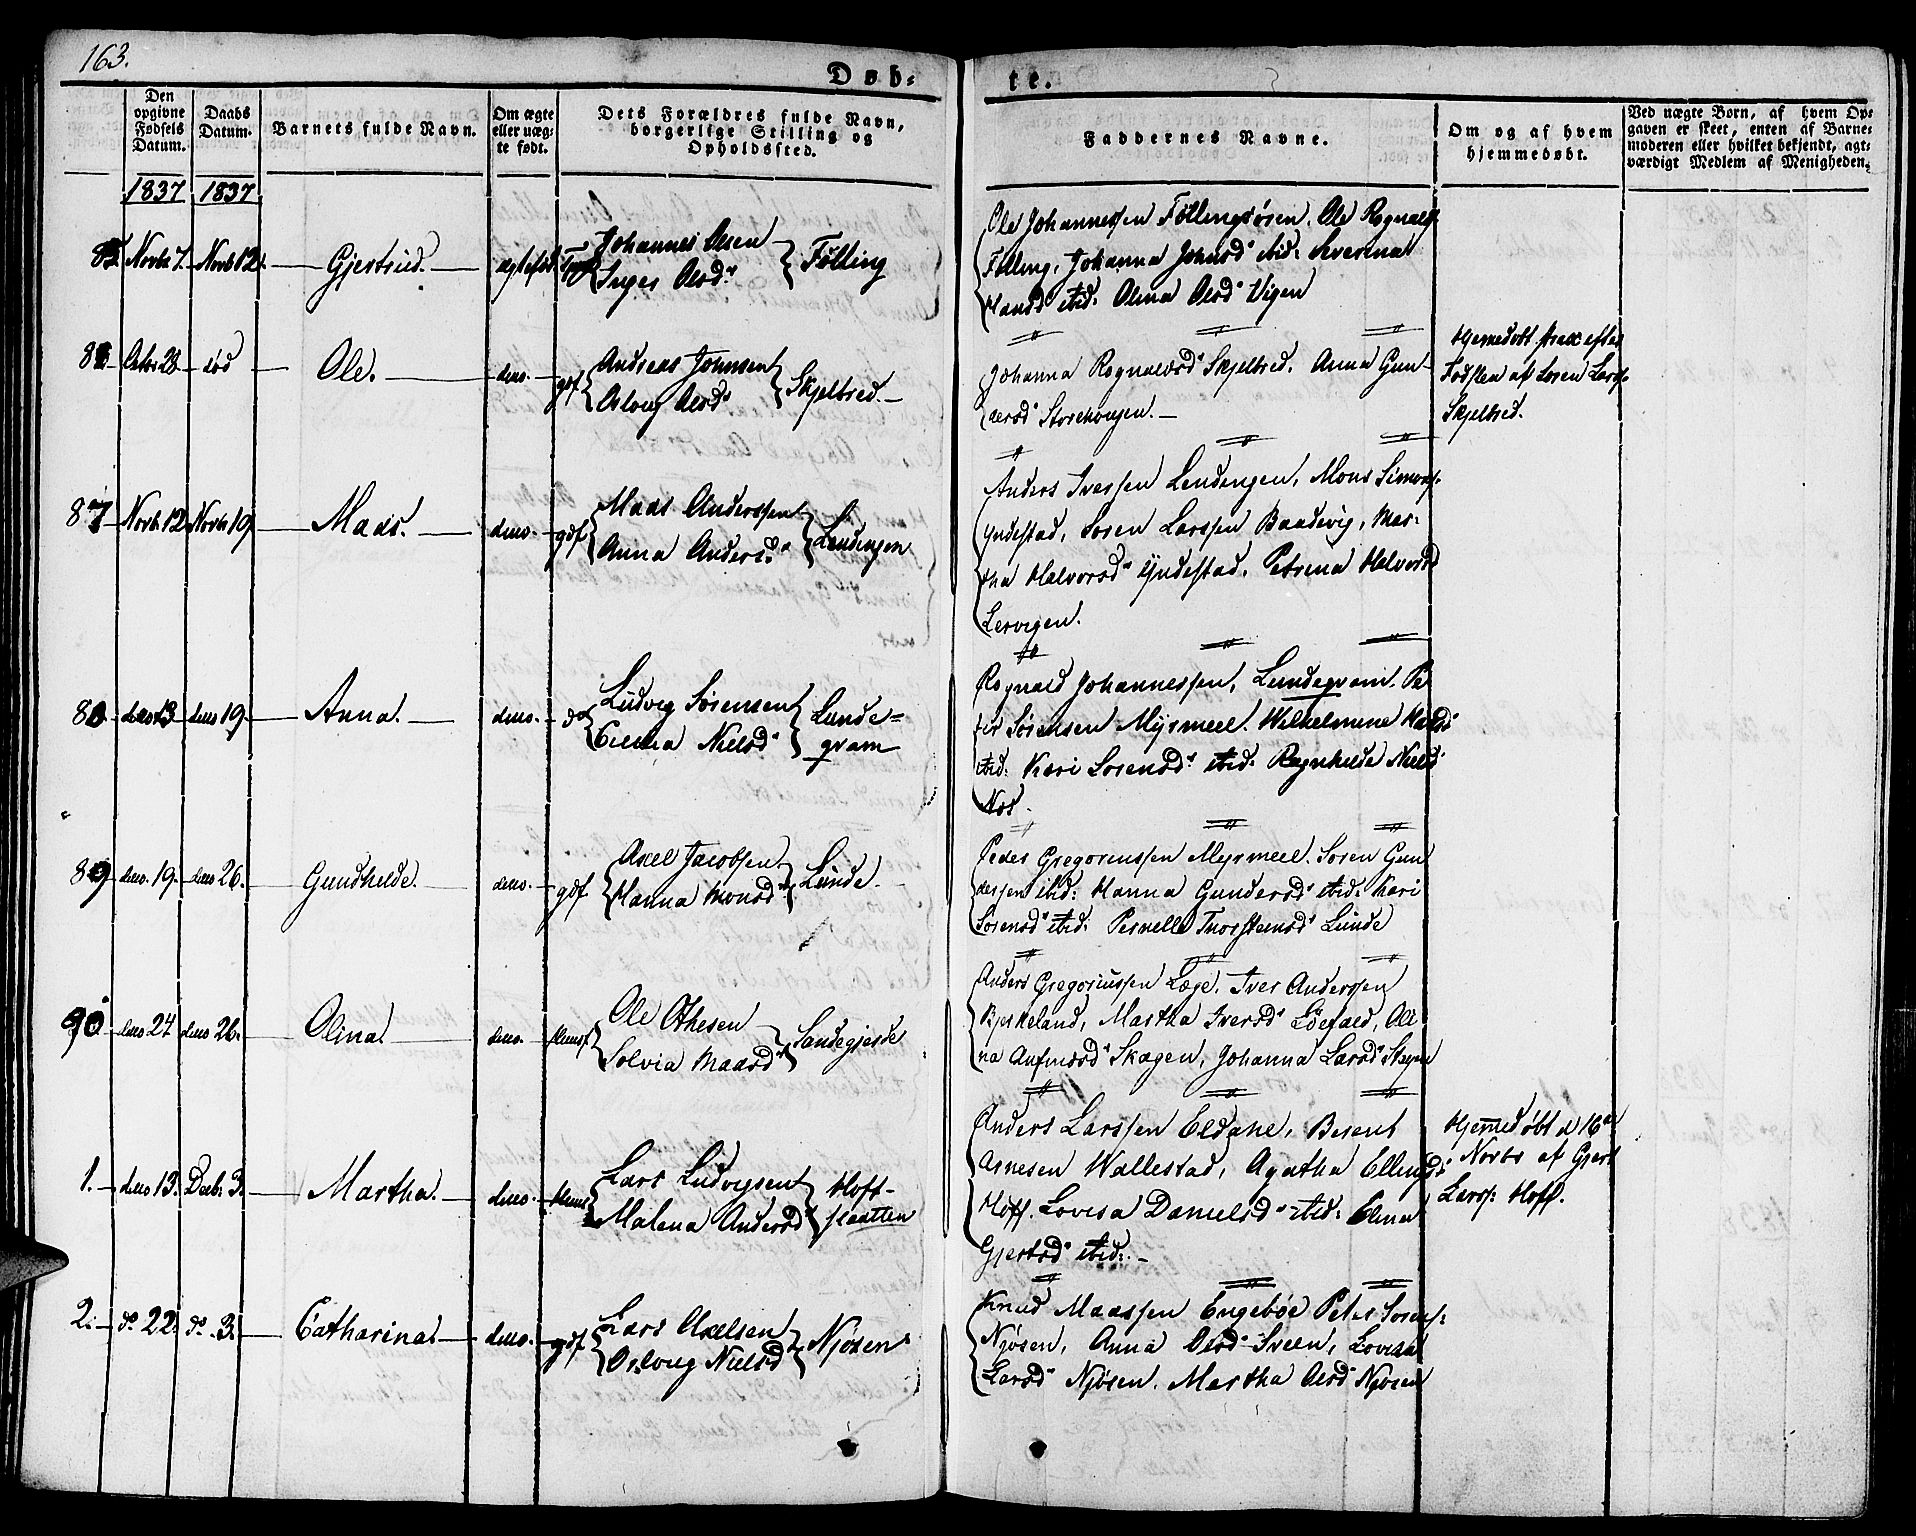 163.
Døb-
te.
Den opgivne Fødsels Datum.
Daabs Datum.
Barnets fulde Navn.
Om ægte eller uægte født.
Dets Forældres fulde Navn, borgerlige Stilling og Opholdssted.
Faddernes Navne.
Om og af hvem hjemmedøbt.
Ved uægte Børn, af hvem Opgaven er skeet, enten af Barnemoderen eller hvilket bekjendt, agtværdigt Medlem af Menigheden.
1837 1837
Novbr 7. Novb 12. Gjertrud.
Johannes Olsen
Inger Olsd. Følling
Ole Johannessen Føllingsøren. Ole Rognalds.
Følling, Johanna Johnsd ibid: Severina
Hansd ibid. Olina Olsd Vigen
Octbr 28 død Ole. dens. gdf
Andreas Johnsen
Osloug Olsd Skjelbred.
Johanna Rognaldsd Skjelbred. Anna Gun-
dersd Storehougen.
Hjemedøbt strax efter
Fødslen af Søren Larss:
Skjelbred.
87 Novb 12 Novb 19 Mads. dens. gdf
Mads Anderssen
Anna Andersd. Lendingen
Anders Iverssen Lendingen, Mons Simons:
Yndestad, Soren Larssen Baadevig, Mar-
tha Halvorsd Yndestad. Petrina Halvorsd
Lervigen.
dens 13 dens 19. Anna. dens. do
Ludvig Sørensen
Nielsd Lunde=
gram
Rognald Johannessen, Lundegram. Pe
ter Sørensen Myrmeel. Wilhelmine Hansd
ibid: Kari Sorensd ibid: Ragnhilde Nielsd
Nos.
89 dens. 19. dens 26. Gundhilde. dens. gdf
Axel Jacobsen
Hanna Monsd Lunde.
Peder Gregoriussen Myrmeel. Soren Gun
dersen ibid: Hanna Gundersd ibid: Kari
Sorensd ibid: Pernelle Thorsteensd Lunde
90 dens 24 dens 26. Olina dens.
Ole Othesen
Solvia Maasd Sandegjerde
Anders Gregoriussen Læge. Iver Anderssen
Birkeland, Martha Iversd Løefald, Oli
na Skagen, Johanna Larsd
1. dens 13. Decbr 3. Martha. dens.
Lars Ludvigsen Hoff-
Malena Andersd plaatten
Anders Larssen Eldane, Berent
Arnesen Wallestad, Agatha Ellingsd
Hoff. Lovisa Danielsd ibid: Elina
Gjertsd ibid:
Hjemedøbt d 16de
Novbr af Gjert
Larss: Hoff.
2. do 22. do 3. Catharina. dens. gdf
Lars Axelsen
Osloug Nielsd Njøsen
Knud Maassen Engebøe Peter Sorens:
Njøsen, Anna Olsd Sveen, Lovisa
Larsd Njøsen. Martha Olsd Njøsen